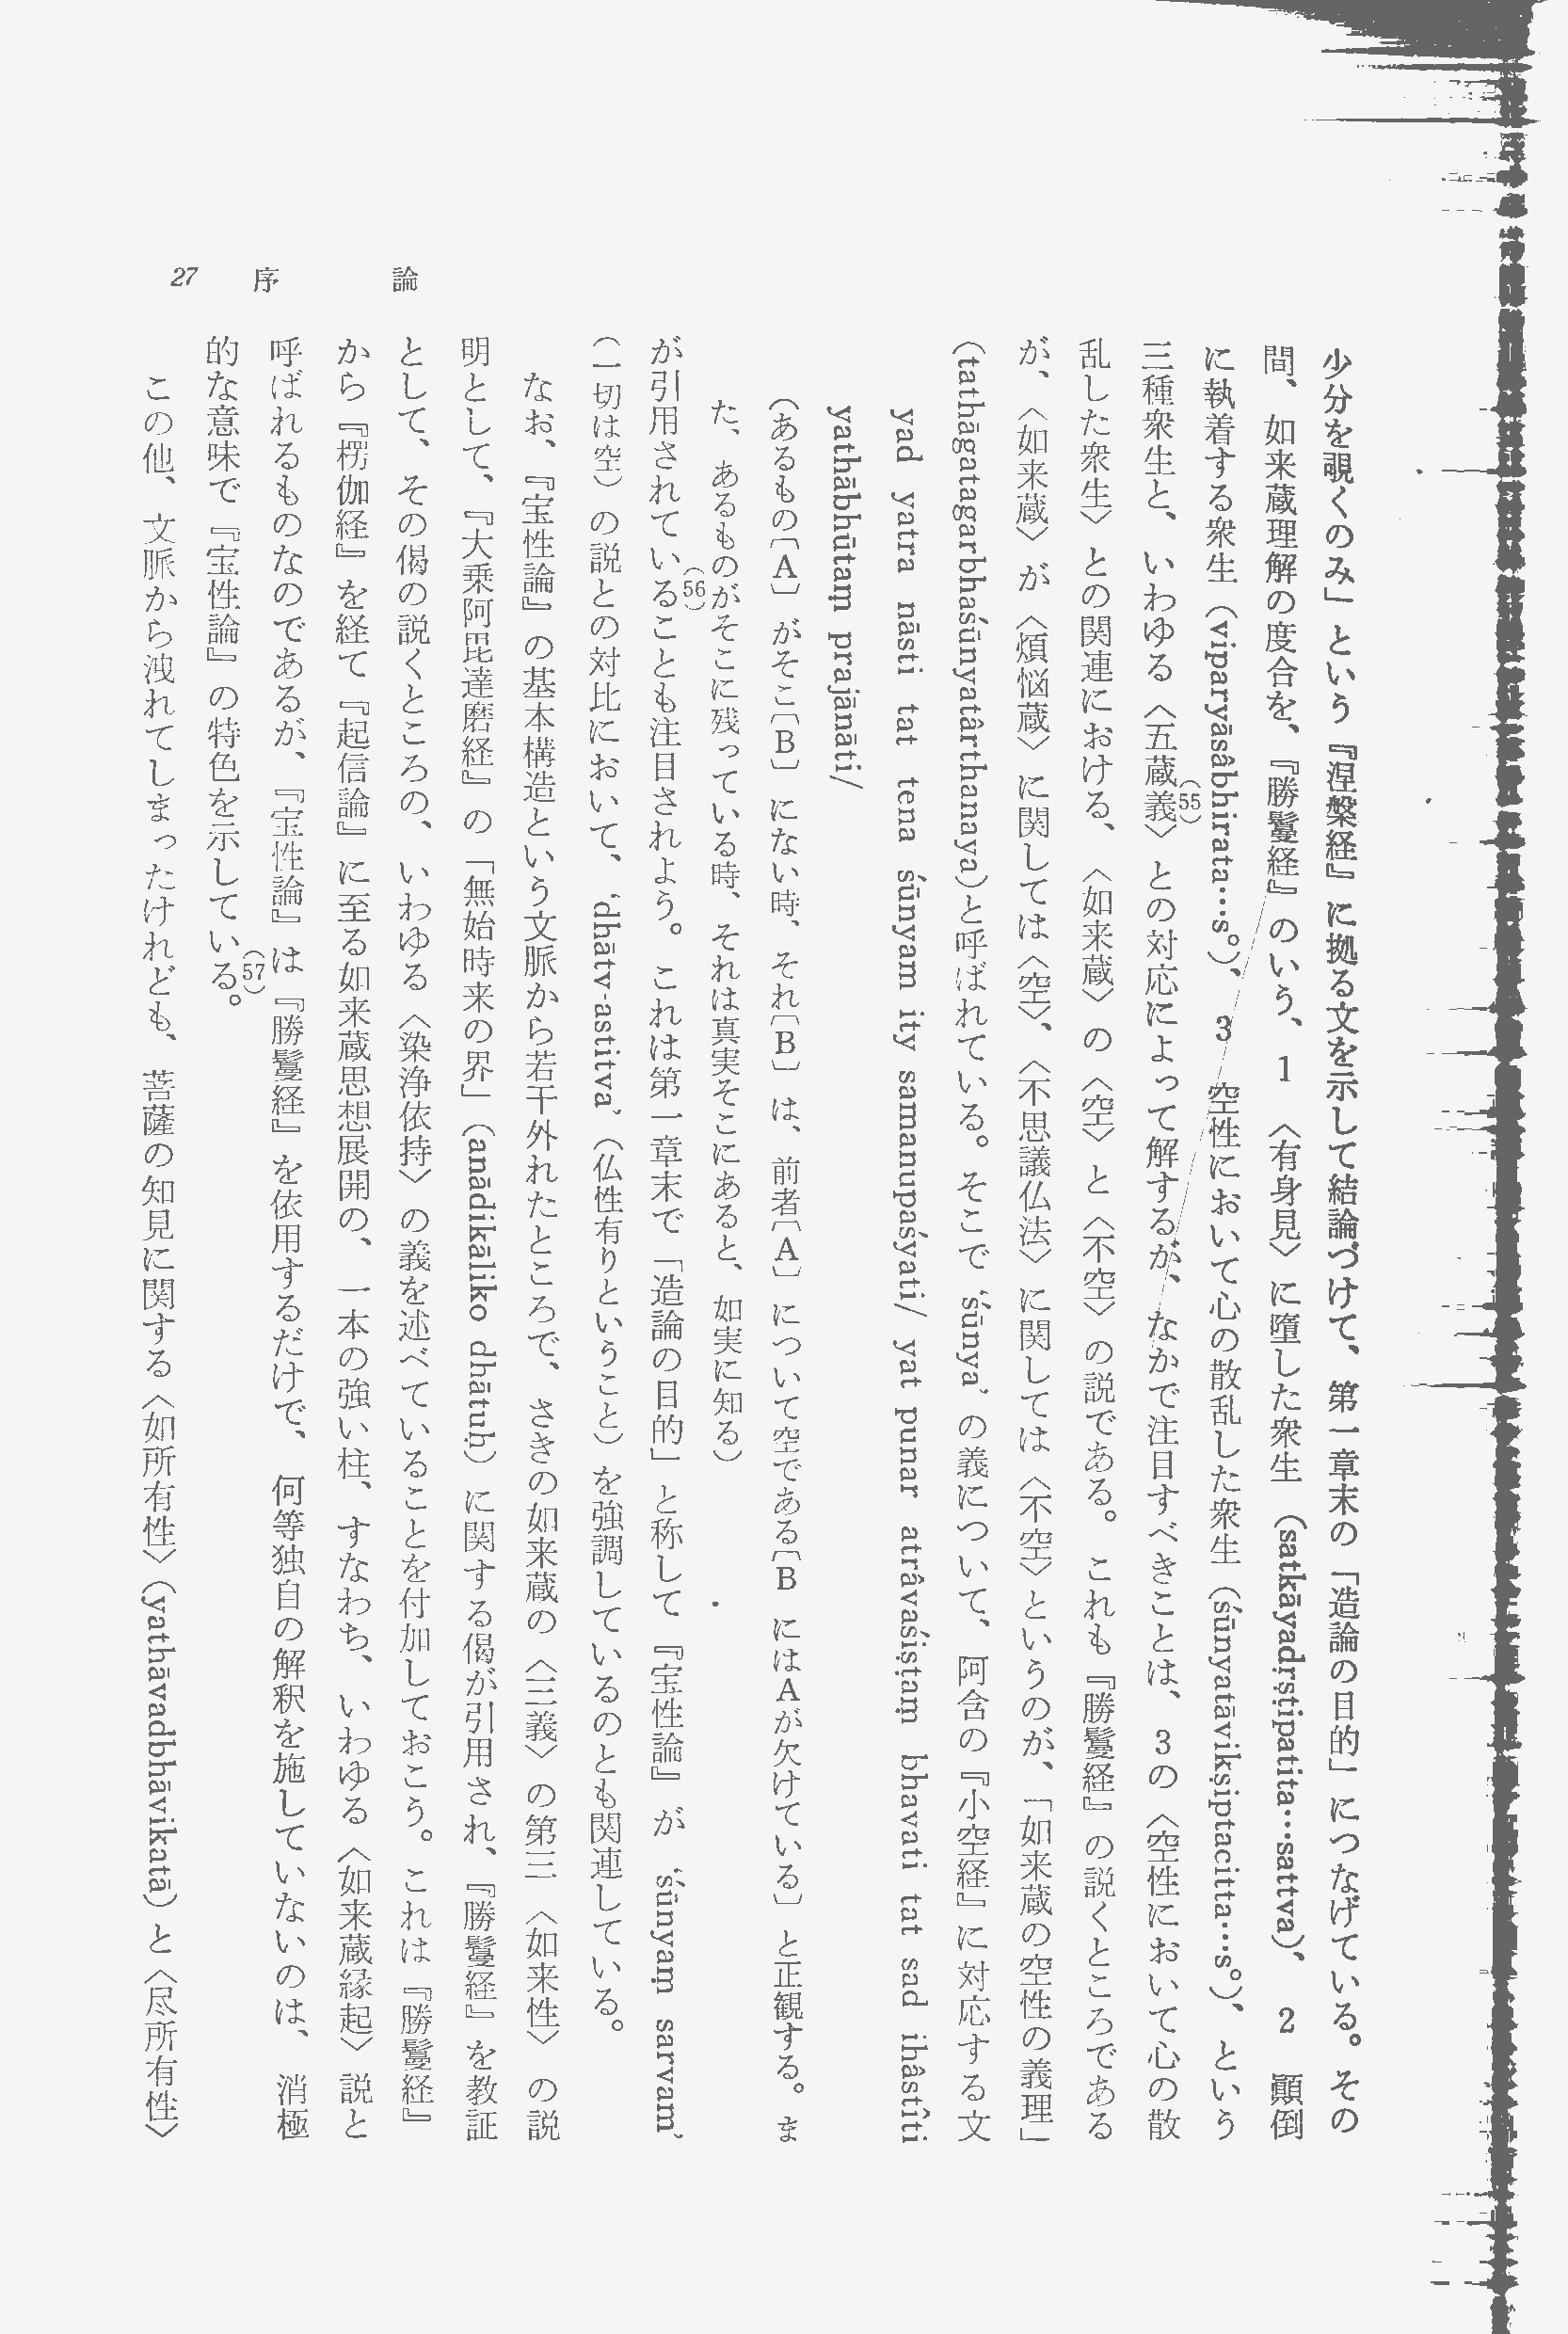 27 序 論
少分を覗くのみ」という『涅槃経』に拠る文を示して結論づけて、第一章末の「造論の目的」につなげている。その
間、如来蔵理解の度合を、『勝鬘経』のいう、1 〈有身見〉に墮した衆生(satkāyadṛṣṭipatita‥‥sattva)、2 顚倒
に執着する衆生(viparyāsâbhirata‥‥s°)、3 空性において心の散乱した衆生(śūnyatāvikṣiptacitta‥‥s°)、という
三種衆生と、いわゆる〈五蔵義〉(55)との対応によって解するが、なかで注目すべきことは、3の〈空性において心の散
乱した衆生〉との関連における、〈如来蔵〉の〈空〉と〈不空〉の説である。これも『勝鬘経』の説くところである
が、〈如来蔵〉が〈煩悩蔵〉に関しては〈空〉、〈不思議仏法〉に関しては〈不空〉というのが、「如来蔵の空性の義理」
(tathāgatagarbhaśūnyatârthanaya)と呼ばれている。そこで‘śūnya’の義について、阿含の『小空経』に対応する文
yad yatra nāsti tat tena śūnyam ity samanupaśyati/ yat punar atrâvaśiṣṭaṃ bhavati tat sad ihâstîti
yathābhūtaṃ prajānāti/
(あるもの〔A〕がそこ〔B〕にない時、それ〔B〕は、前者〔A〕について空である〔BにはAが欠けている〕と正観する。ま
た、あるものがそこに残っている時、それは真実そこにあると、如実に知る)
が引用されている(56)ことも注目されよう。これは第一章末で「造論の目的」と称して『宝性論』が‘śūnyaṃ sarvam’
(一切は空)の説との対比において、‘dhātv-astitva’(仏性有りということ)を強調しているのとも関連している。
なお、『宝性論』の基本構造という文脈から若干外れたところで、さきの如来蔵の〈三義〉の第三〈如来性〉の説
明として、『大乗阿毘達磨経』の「無始時来の界」(anādikāliko dhātuḥ)に関する偈が引用され、『勝鬘経』を教証
として、その偈の説くところの、いわゆる〈染浄依持〉の義を述べていることを付加しておこう。これは『勝鬘経』
から『楞伽経』を経て『起信論』に至る如来蔵思想展開の、一本の強い柱、すなわち、いわゆる〈如来蔵縁起〉説と
呼ばれるものなのであるが、『宝性論』は『勝鬘経』を依用するだけで、何等独自の解釈を施していないのは、消極
的な意味で『宝性論』の特色を示している(57)。
この他、文脈から洩れてしまったけれども、菩薩の知見に関する〈如所有性〉(yathāvadbhāvikatā)と〈尽所有性〉